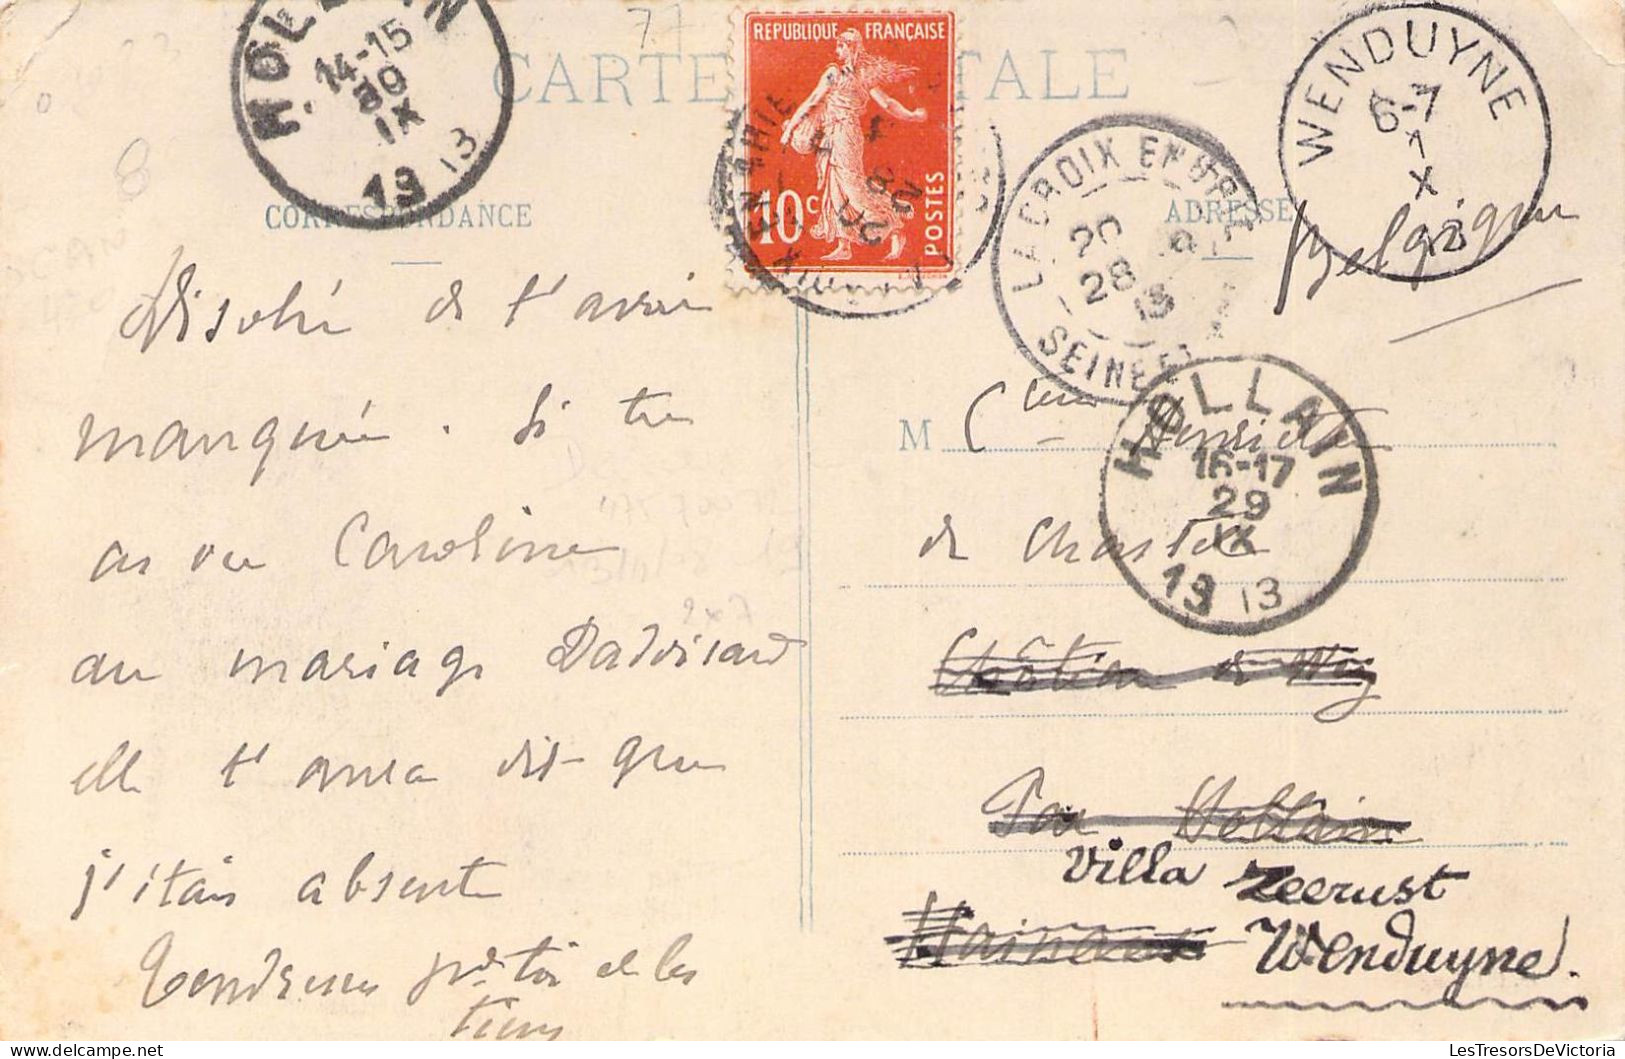 CARTE POSTALE
CORRESPONDANCE
ADRESSE
REPUBLIQUE FRANÇAISE
10c
POSTES
HOLLAIN
14-15
30
IX
1913
WENDUYNE
6-7
1
X
13
LA CROIX EN BRIE
20
28 9
13
SEINE ET
HOLLAIN
16-17
29
IX
1913
77
8
Désolée de t'avoir
manquée. Si tu
as vu Caroline
au mariage
elle t'aura dit que
j'étais absente
Tendresses pr toi et les
tiens
Belgique
M Ctesse Henriette
de Chasteler
Château de
Par Hollain
Hainaut
Villa Zeerust
Wenduyne.
LesTresorsDeVictoria